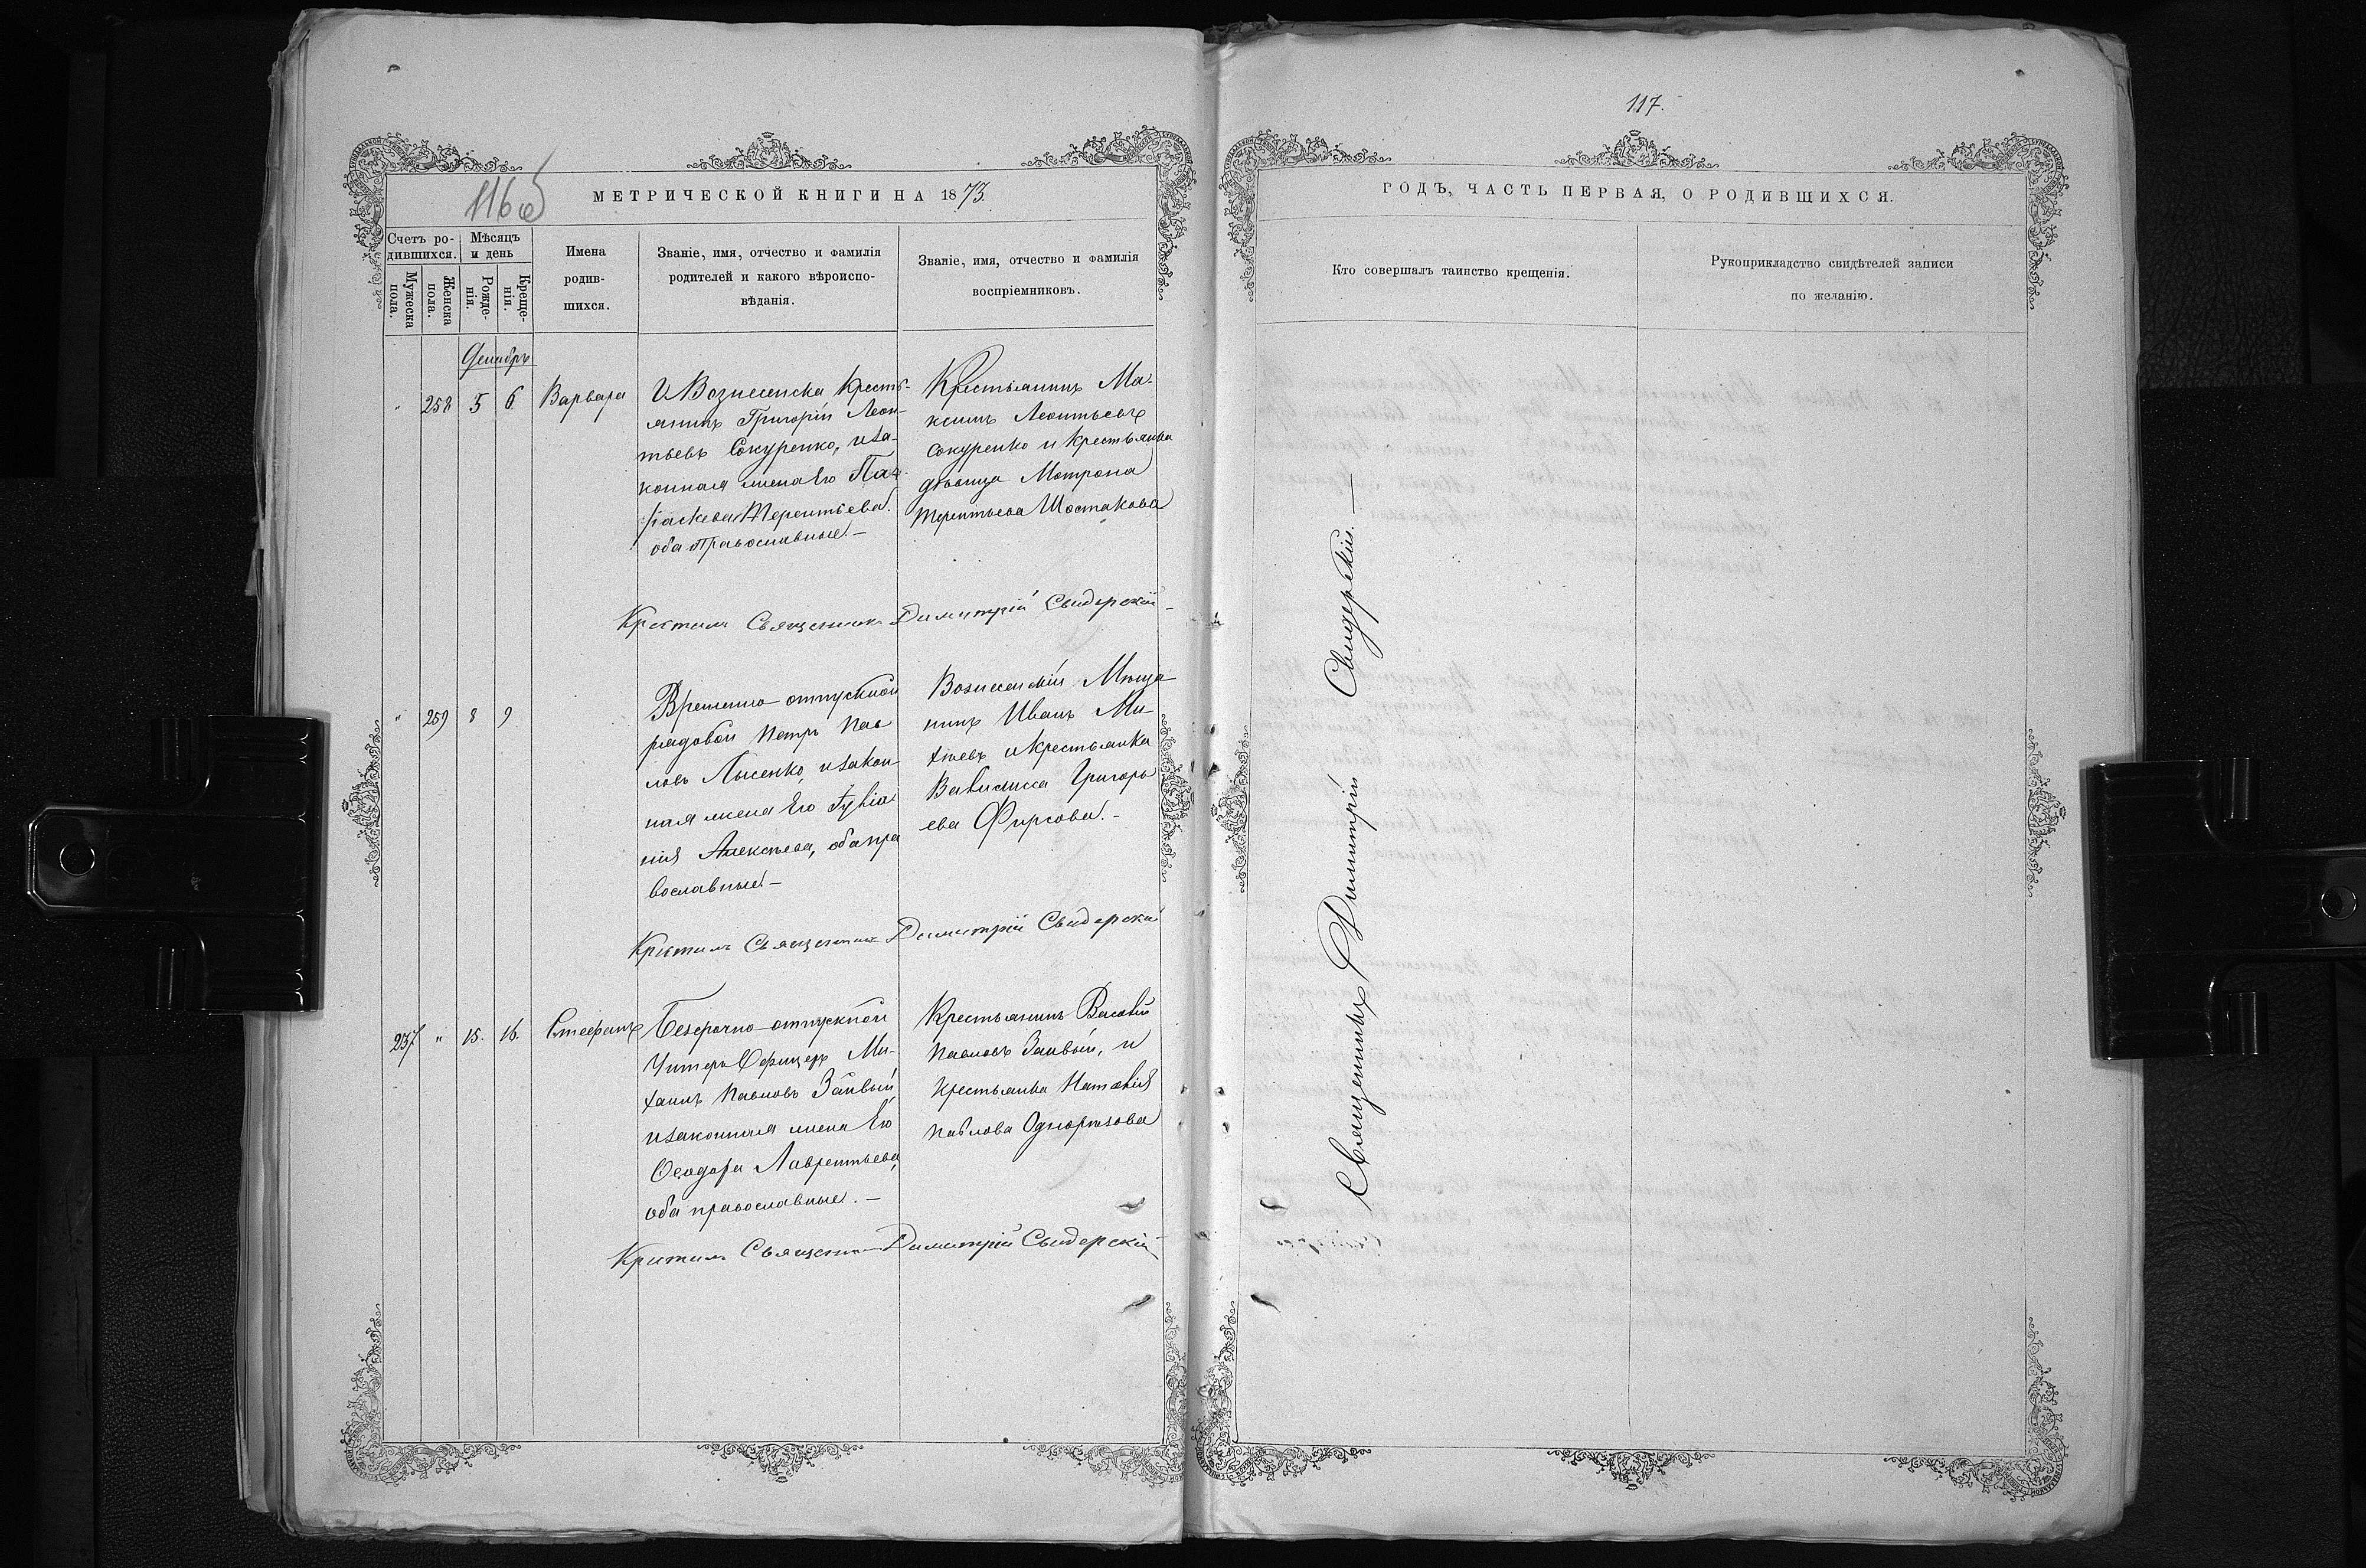 116 об
МЕТРИЧЕСКОЙ КНИГИ НА 1873.
Счетъ ро-
дившихся.
Мужеска
пола.
Женска
пола.
Мѣсяцъ
и день
Рожде-
нія.
Креще-
нія.
Имена
родив-
шихся.
Званіе, имя, отчество и фамилія
родителей и какого вѣроиспо-
вѣданія.
Званіе, имя, отчество и фамилія
воспріемниковъ.
Декабрь
" 258 5 6. Варвара
Г. Вознесенска Кресть-
янинъ Григорій Леон-
тьевъ Сокуренко, и за-
конная жена его Па-
раскева Терентьева.
оба православные. –
Крестьянинъ Ма-
ксимъ Леонтьевъ
Сокуренко и крестьянка
дѣвица Матрона
Терентьева Шостакова
Крестилъ Священникъ Димитрій Свидерскій –
" 259 8 9
Временно-отпускной
рядовой Петръ Пав
ловъ Лысенко, и закон-
ная жена его
Алексѣева, оба пра
вославные. –
Вознесенскій Мѣща-
нинъ Иванъ Ми-
хѣевъ и крестьянка
Григорь
ева Фирсова. –
Крестилъ Священникъ Димитрій Свидерскій
237 " 15. 16. Стефанъ
Безсрочно-отпускной
Унтеръ Офицеръ Ми-
хаилъ Павловъ
и законная жена его
Ѳеодора Лаврентьева,
оба православные. –
Крестьянинъ
Павловъ и
крестьянка Наталія
Павлова
Крестилъ Священникъ Димитрій Свидерскій
117.
ГОДЪ, ЧАСТЬ ПЕРВАЯ, О РОДИВШИХСЯ.
Кто совершалъ таинство крещенія.
Рукоприкладство свидѣтелей записи
по желанію.
Священникъ Димитрій Свидерскій. –